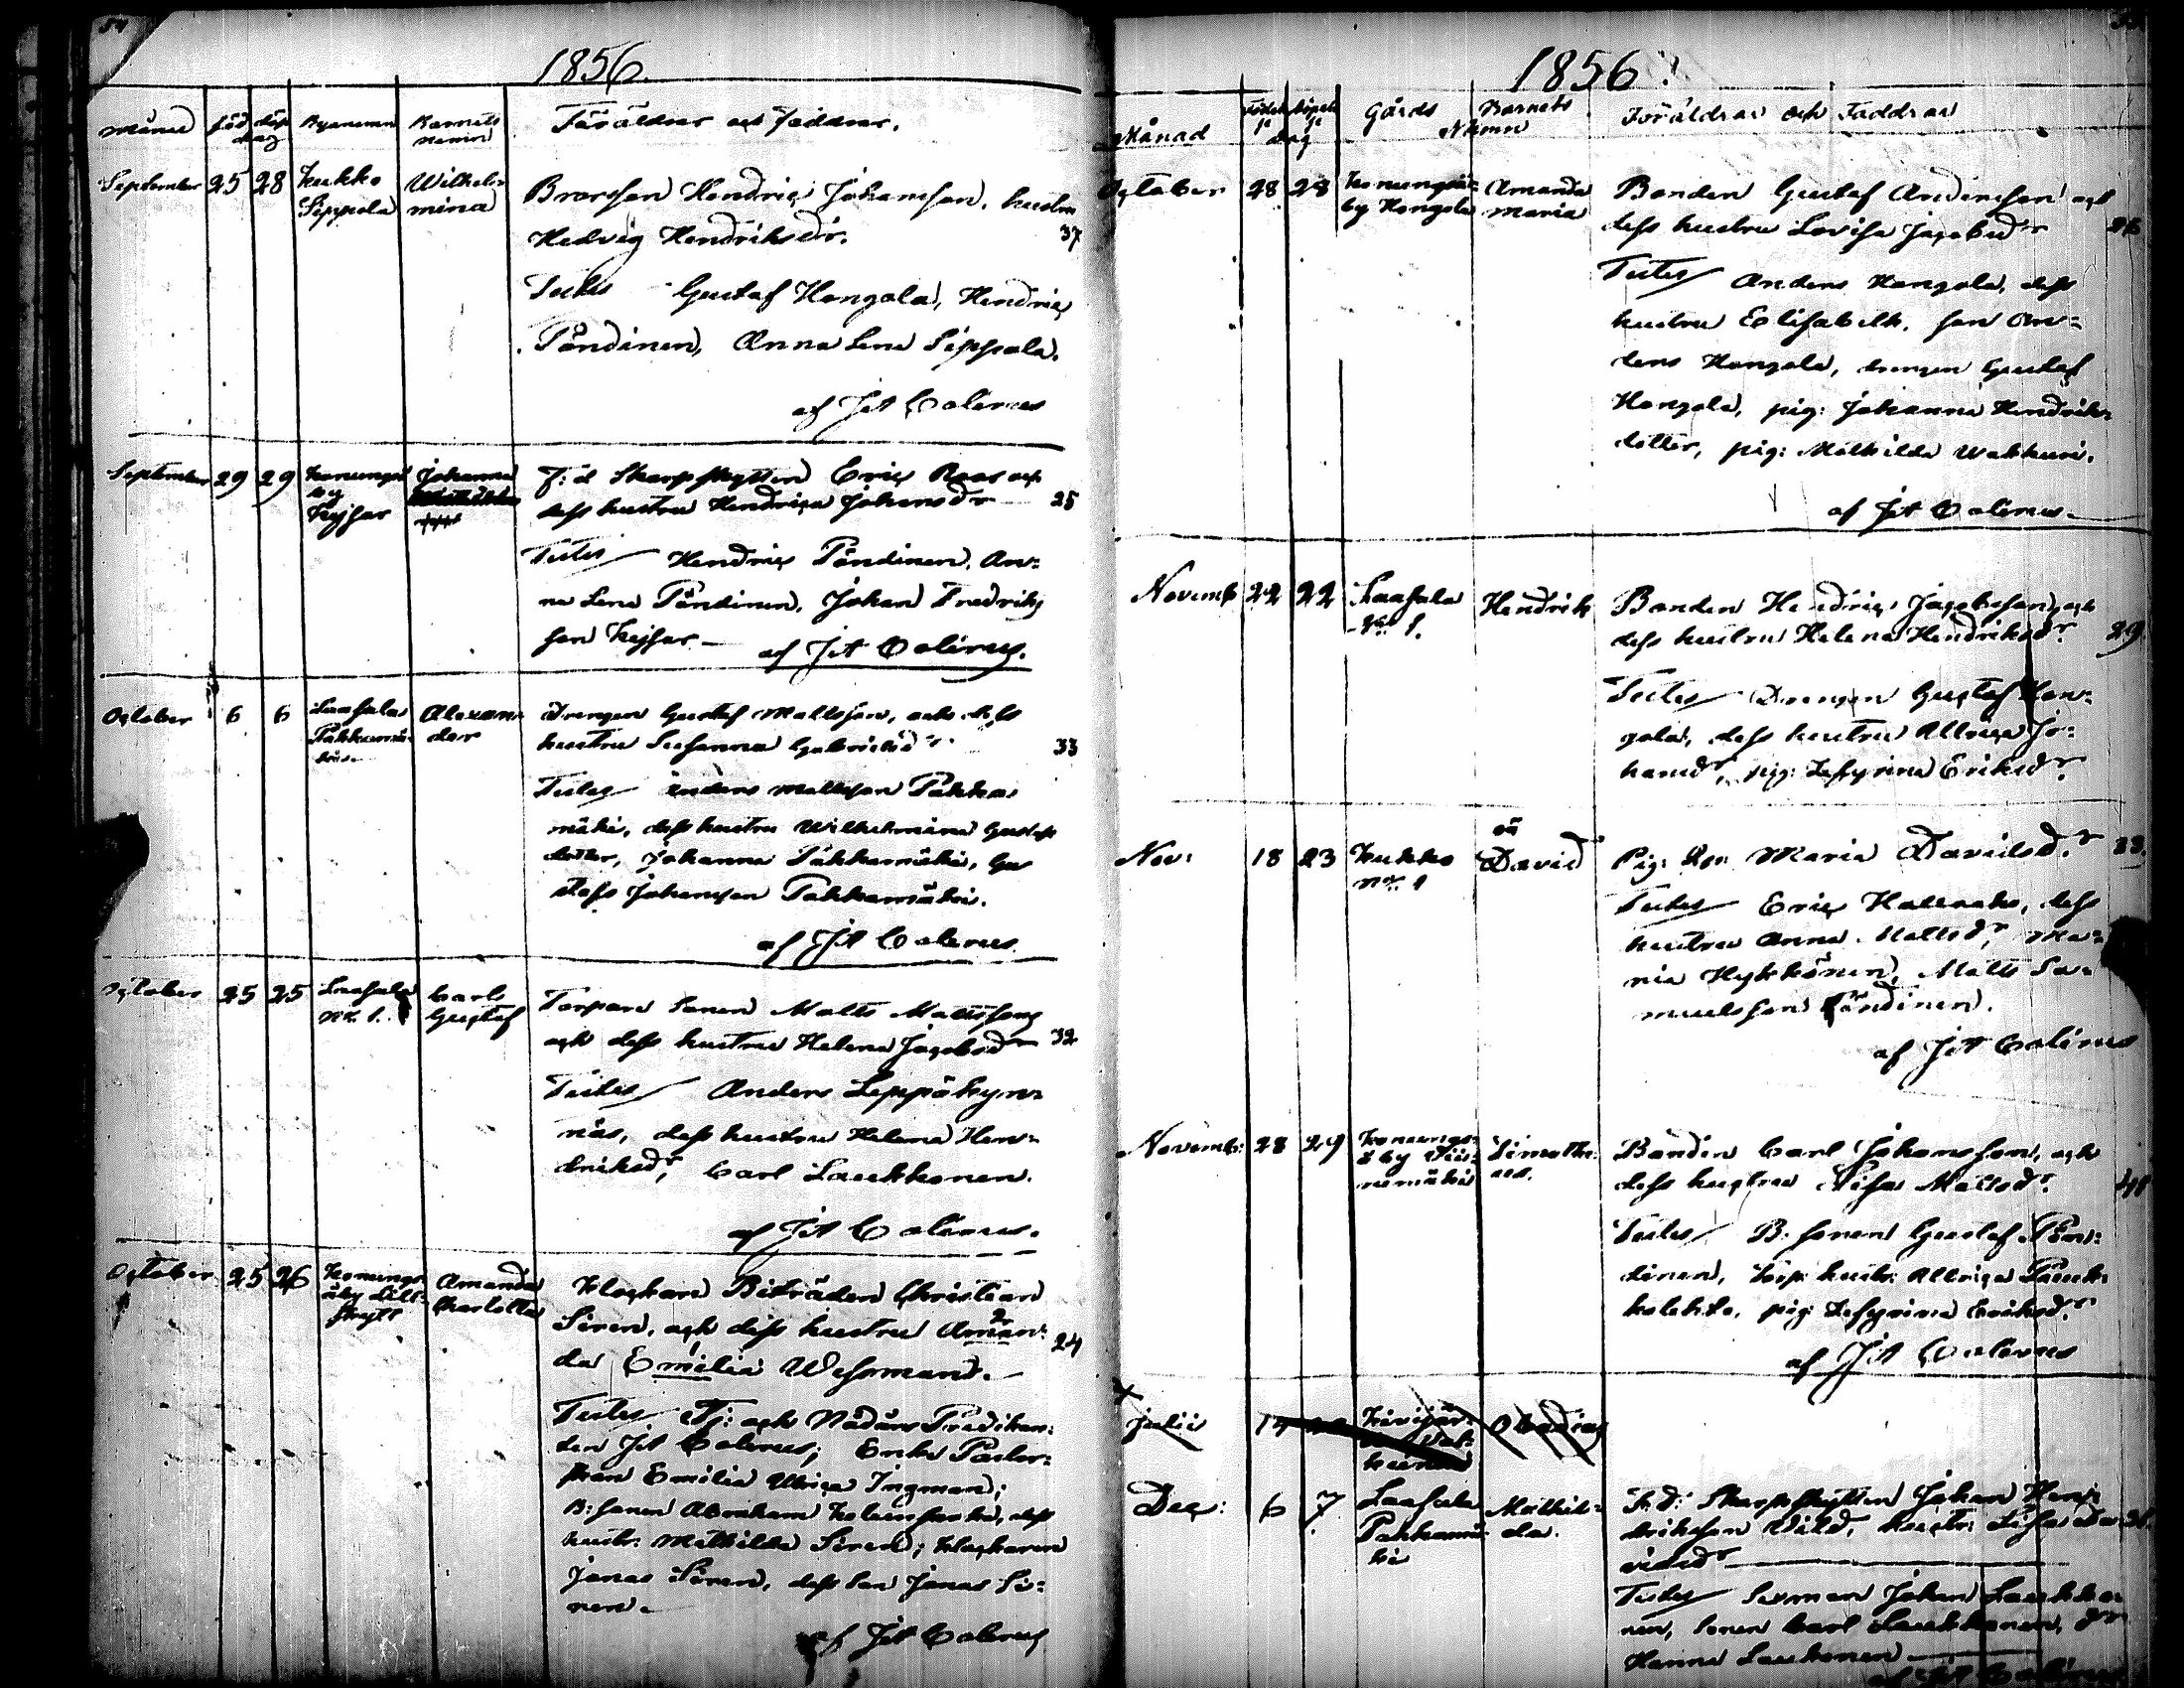 54
1856.
Månad
född
döp
dag
Bynamn
Barnets
namn
Föräldrar och Faddrar.
September 25 28
Kukko
Sippola
Wilhel-
mina
Brorson Hendric Johansson, hustru
Hedvig Hendriksdr. 37
Testes Gustaf Hongola, Hendric
Pöndinen, Anna Lena Sippola.
af JA Calenus
September 29 29
Konungs
by
Kejsar
Johanna
F: d Skarpskytten Eric Roos och
dess hustru Hendrica Johansdr 25
Testes Hendric Pöndinen, An=
na Lena Pöndinen, Johan Fredriks
son Kejsar af JA Calenus.
October 6 6
Laasala
Pakkamä-
ki
Alexan-
der
Drengen Gustaf Mattsson, och dess
hustru Susanna Gabrielsdr. 33
Testes Anders Mattsson Pakka
mäki, dess hustru Wilhelmina Gustafs
dotter, Johanna Pakkamäki, Gu
staf Johansson Pakkamäki.
af JA Calenus.
October 25 25
Laasala
No. 1.
Carl
Gustaf
Torpare Sonen Matts Mattsson
och dess hustru Helena Jacobsdr 32
Testes Anders Leppäkyn=
näs, dess hustru Helena Hen=
driksdr, Carl Laukkonen.
af JA Calenus.
October 25 26
Konungs-
åby Lill-
Skytt
Amanda
Charlotta
Klockare Biträden Christian
Siren, och dess hustru Aman- 24
da Emilia Wessman.
Testes Tj: och Nådårs Predikan-
den JA Calenus; Enke Pastor-
skan Emilia Ulrica Ingman;
B: sonen Abraham dess
hustr: Mathilda Siren; Klockaren
Jonas Siren, dess Son Jonas Si=
ren.
af JA Calenus
1856.
Månad
Födelse
Döpelse
Dag
Gårds
Barnets
Namn
Föräldrar och Faddrar
October 28 28
Konungså-
by Hongola
Amanda
Maria
Bonden Gustaf Andersson och
dess hustru Lovisa Jacobsdr
Testes Anders Hongola, dess
hustru Elisabeth, son An=
ders Hongola, drengen Gustaf
Hongola, pig: Johanna Hendriks
dotter, pig: Mathilda Wakkuri.
af JA Calenus.
Novemb 22 22
Laasala
No 1.
Hendrik
Bonden Hendric Jacobsson, och
dess hustru Helena Hendriksdr. 29
Testes Drengen Gustaf Hon-
gola, dess hustru Ulrica Jo-
hansdr, pig: Zefyrina Eriksdr.
Nov: 18 23
Kukko
No. 1
oä
David
Pig: Maria Davidsdr. 23.
Testes Eric dess
hustru Anna Mattsdr, Ma=
ria Hykkönen, Matts Sa=
muelsson Pöndinen.
af JA Calenus
Novemb: 28 29
Konungs-
åby
Timothe-
us.
Bonden Carl Johansson, och
dess hustru Lisa Mattsdr.
Testes B. sonen Gustaf Pön-
dinen, Torp: hustr: Ulrica
pig: Zefyrina Eriksdr.
af JA Calenus
Julii
Dec: 6 7
Laasala
Pakkamä
ki
Mathil-
da.
F. d: Skarpskytten Johan Hen
driksson Wild, hustr: Lisa Da
vidsdr
Testes Johan Laukko
nen, Sonen Carl Laukkonen, dr
Hanna Laukonen
af JA Calenus